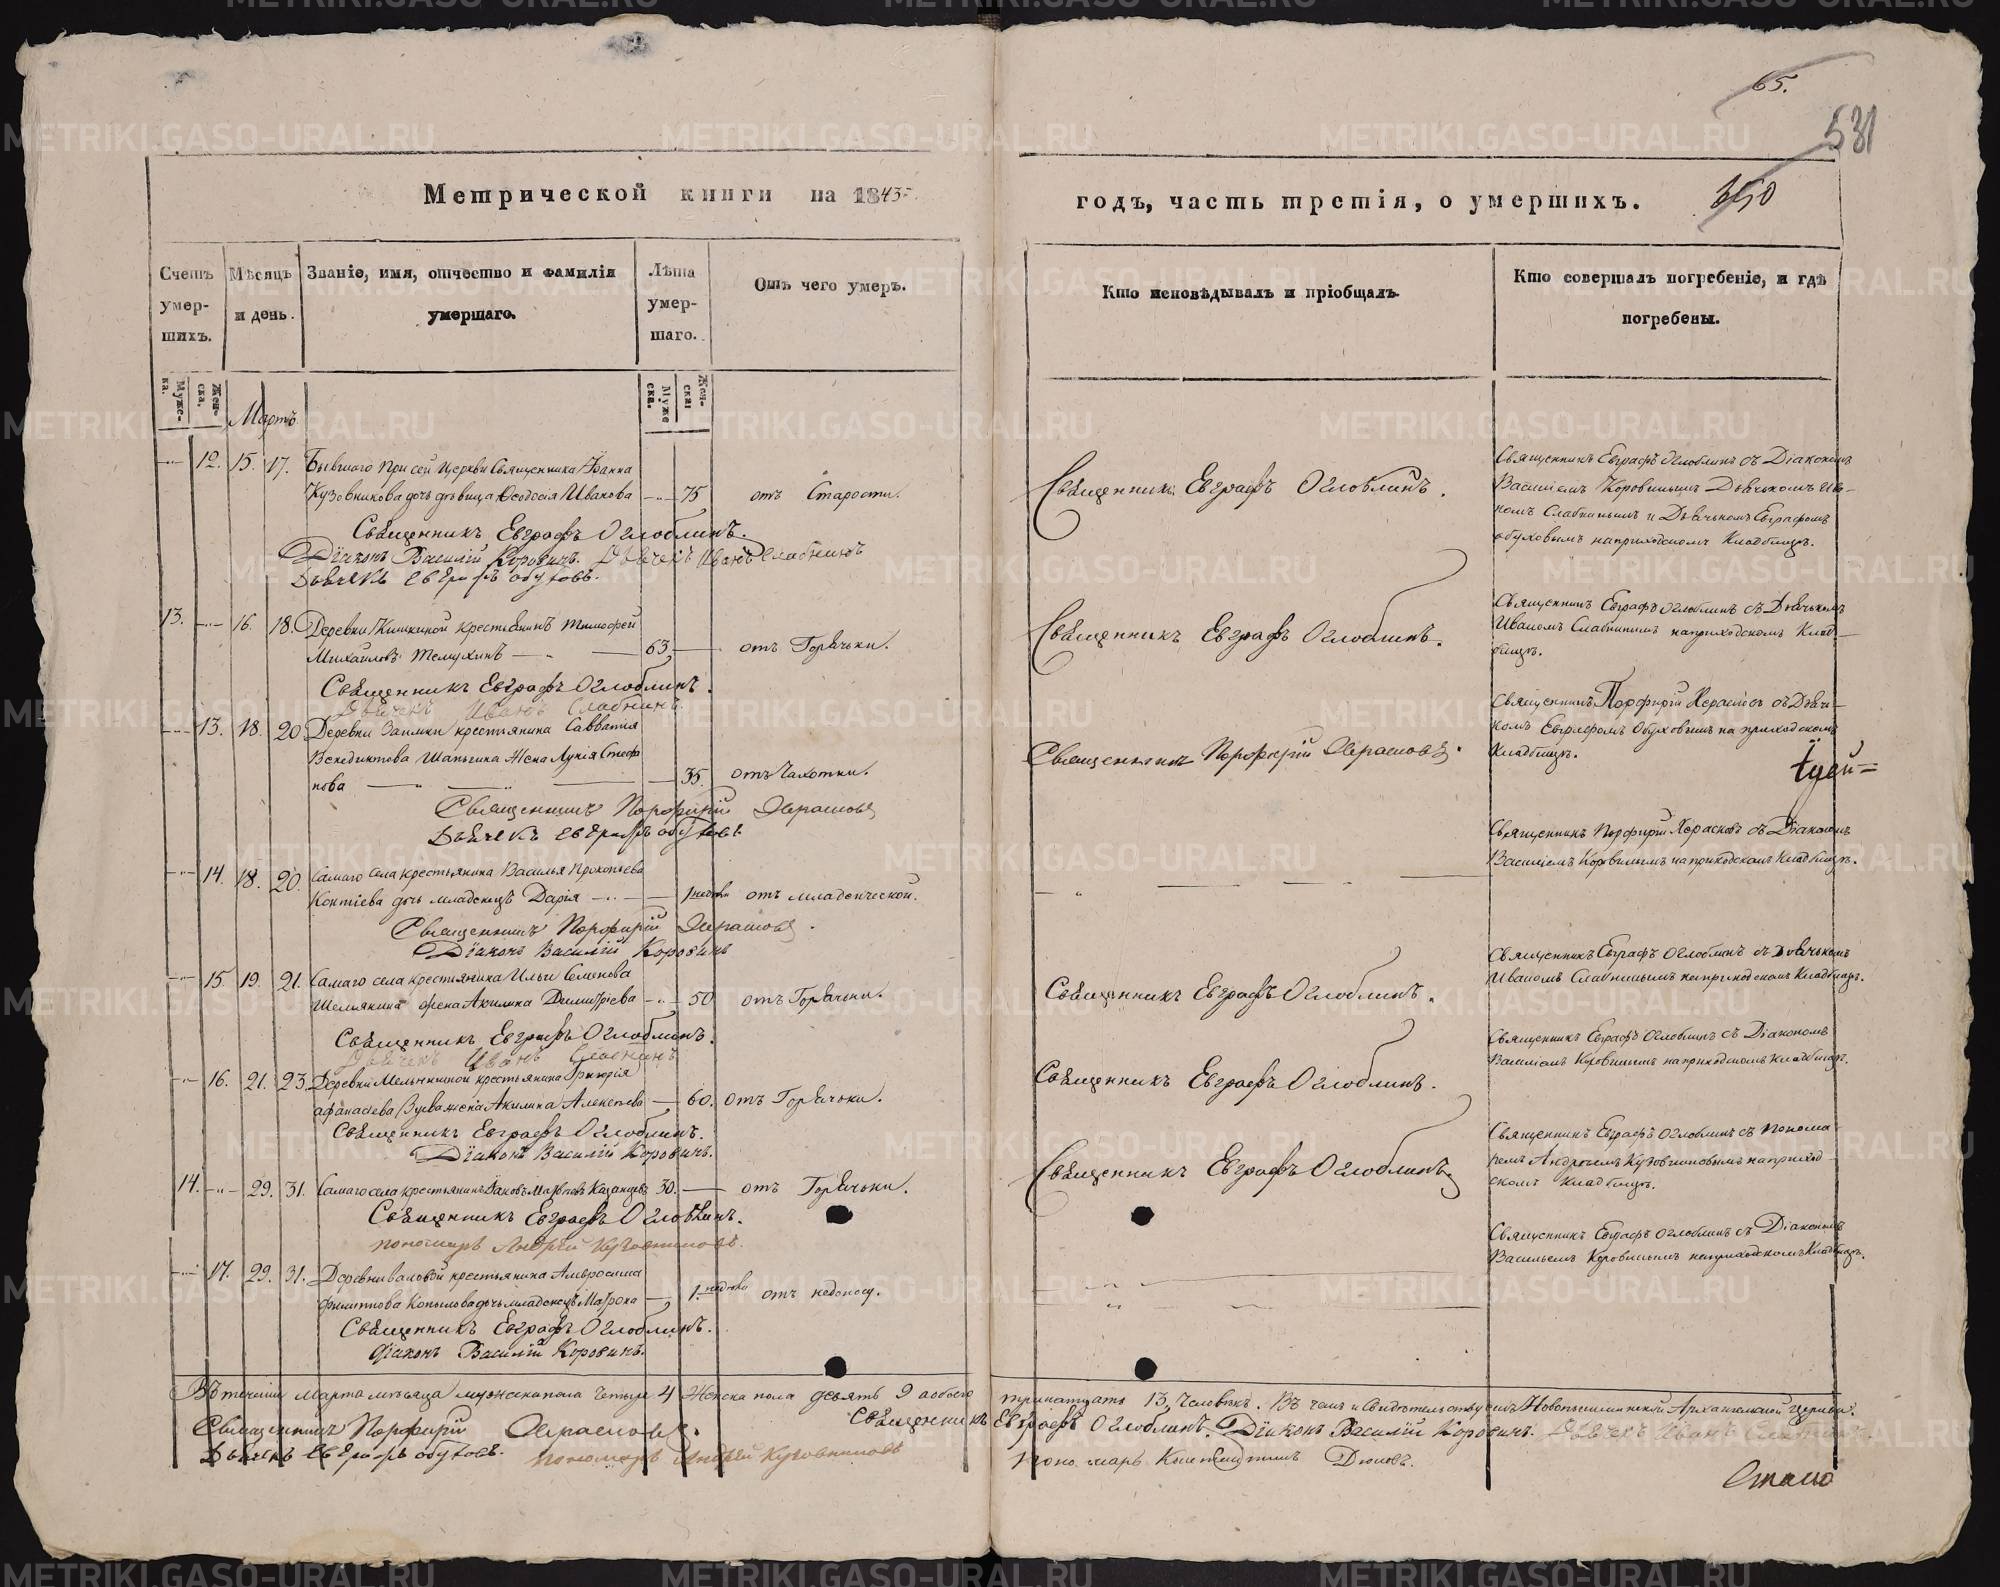 65.
531
350
Метрической книги на 1843
годъ, часть третія, о умершихъ.
Счетъ умер-шихъ.
Мѣсяцъ и день.
Званіе, имя, отчество и фамилія умершаго.
Лѣта умер-шаго.
Отъ чего умеръ.
Кто исповѣдывалъ и пріобщалъ
Кто совершалъ погребеніе, и гдѣ погребены.
Муже-ска.
Жен-ска.
Муже ска.
Жен-ска
Мартъ
12. 15. 17. Бывшаго при сей Церкви Священника Іоанна
Кузовникова дочь дѣвица Ѳеодосія Иванова 75 отъ Старости.
Священникъ Евграфъ Оглоблинъ.
Священникъ Евграфъ Оглоблинъ съ Діакономъ
Василіемъ Коровинымъ Дьячькомъ Ив-
номъ Слабнинымъ и Дьячькомъ Евграфомъ
Обуховымъ на приходскомъ Кладбищѣ.
Священникъ Евграфъ Оглоблинъ.
Діаконъ Василій Коровинъ. Дьячекъ Иванъ Слабнинъ
Дьячекъ Евграфъ Обуховъ.
13. 16. 18. Деревни Кишкиной крестьянинъ Тимофей
Михайловъ Телухинъ 63, отъ Горячьки.
Священникъ Евграфъ Оглоблинъ.
Священникъ Евграфъ Оглоблинъ съ Дьячькомъ
Иваномъ Слабнинымъ на приходскомъ Клад-
бищѣ.
Священникъ Евграфъ Оглоблинъ.
Дьячекъ Иванъ Слабнинъ.
13. 18. 20 Деревни Заимки крестьянина Савватія
Венедиктова Шаньгина Жена Лукія Стефа
нова 35. отъ Чахотки.
Священникъ Порфирій Херасковъ.
Священникъ Порфирій Херасковъ съ Дьячь-
комъ Евграфомъ Обуховымъ на приходскомъ
Кладбищѣ.
Священникъ Порфирій Херасковъ
Дьячекъ Евграфъ Обуховъ
14. 18. 20. Самаго села крестьянина Василья Прокопьева
дочь младенецъ Дарія 1 недѣли отъ младенческой.
Священникъ Порфирій Херасковъ съ Діакономъ
Василіемъ Коровинымъ на приходскомъ Кладбищѣ.
Священникъ Порфирій Херасковъ.
Діаконъ Василій Коровинъ
15. 19. 21. Самаго села крестьянина Ильи Семенова
Шелякина жена Акилина Димитріева 50 отъ Горячьки.
Священникъ Евграфъ Оглоблинъ.
Священникъ Евграфъ Оглоблинъ съ Дьячькомъ
Иваномъ Слабнинымъ на приходскомъ Кладбищѣ.
Священникъ Евграфъ Оглоблинъ.
Дьячекъ Иванъ Слабнинъ
16. 21. 23. Деревни Мельничной крестьянина Григорія
Афанасева Зуева жена Акилина Алексѣева 60. отъ Горячьки.
Священникъ Евграфъ Оглоблинъ.
Священникъ Евграфъ Оглоблинъ съ Діакономъ
Василіемъ Коровинымъ на приходскомъ Кладбищѣ.
Священникъ Евграфъ Оглоблинъ.
Діаконъ Василій Коровинъ.
14. 29. 31. Самаго села крестьянинъ Іаковъ Матвѣевъ Казанцевъ 30. отъ Горячьки.
Священникъ Евграфъ Оглоблинъ
Священникъ Евграфъ Оглоблинъ съ Понома
ремъ Андреемъ Кузовниковымъ на приход-
скомъ Кладбищѣ.
Священникъ Евграфъ Оглоблинъ.
Пономарь Андрей Кузовниковъ.
17. 29. 31. Деревни крестьянина Амвросима
Филиппова Копылова дочь младенецъ Матрона 1. недѣли отъ недоносу.
Священникъ Евграфъ Оглоблинъ съ Діакономъ
Васильемъ Коровинымъ на приходскомъ Кладбищѣ.
Священникъ Евграфъ Оглоблинъ.
Діаконъ Василій Коровинъ.
Въ теченіи Марта мѣсяца мужеска пола четыре 4 Женска пола девять 9 а обоего тринатцать 13, Человѣкъ. Въ чемъ и Свидѣтельствуемъ Архангельской Церкви.
Священникъ Порфирій Херасковъ. Священникъ Евграфъ Оглоблинъ. Діаконъ Василій Коровинъ. Дьячекъ Иванъ Слабнинъ.
Дьячекъ Евграфъ Обуховъ. Пономарь Андрей Кузовниковъ Пономарь Константинъ Дюковъ.
METRIKI.GASO-URAL.RU